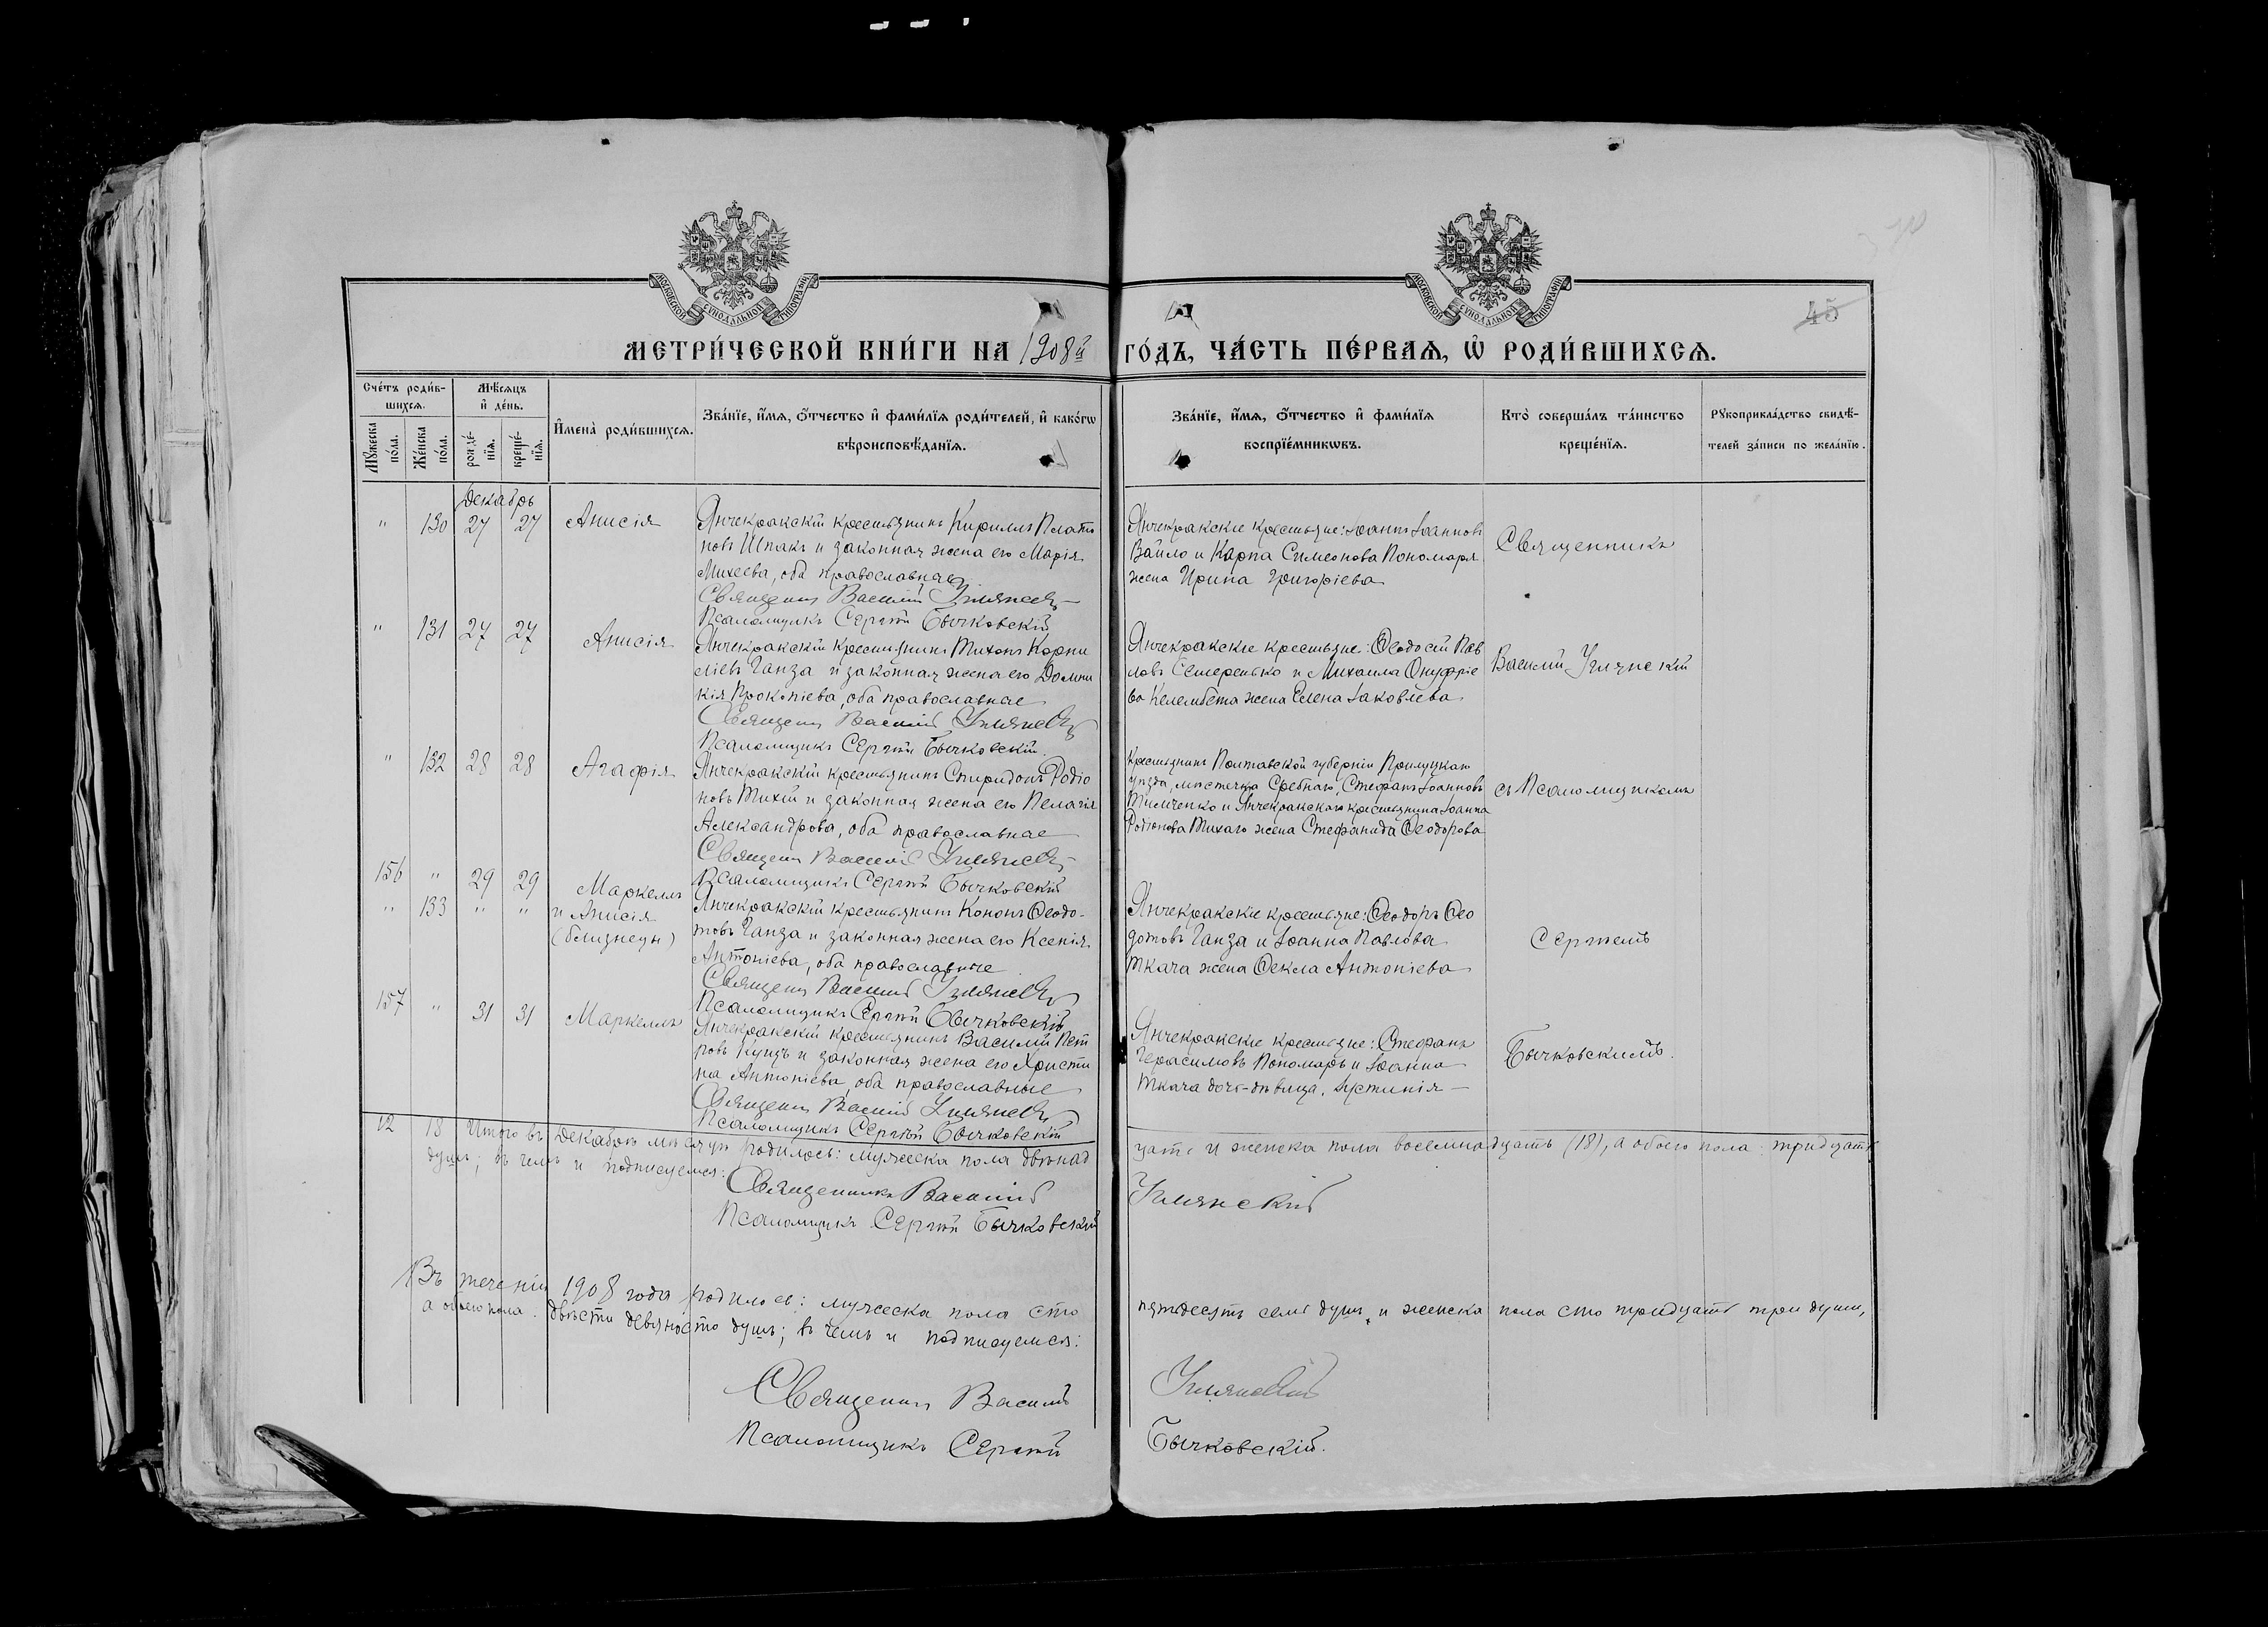 МОСКОВСКОЙ СѴНОДАЛЬНОЙ ТИПОГРАФІИ
МОСКОВСКОЙ СѴНОДАЛЬНОЙ ТИПОГРАФІИ
45
МЕТРИ́ЧЕСКОЙ КНИ́ГИ НА 1908й ГО́ДЪ, ЧА́СТЬ ПЕ́РВАѦ, Ѡ҆ РОДИ́ВШИХСѦ.
Сче́тъ роди́в-
шихсѧ.
Мѣ́сѧцъ
и҆ де́нь.
И҆мена̀ роди́вшихсѧ.
Зва́нїе, и҆́мѧ, ѻ҆́тчество и҆ фами́лїѧ роди́телей, и҆ како́гѡ
вѣроисповѣ́данїѧ.
Зва́нїе, и҆́мѧ, ѻ҆́тчество и҆ фами́лїѧ
воспрїе́мникѡвъ.
Кто̀ соверша́лъ та́инство
креще́нїѧ.
Рꙋкоприкла́дство свидѣ́-
телей за́писи по жела́нїю.
Мꙋ́жеска
по́ла.
Же́нска
по́ла.
рожде́-
нїѧ.
креще́-
нїѧ.
Декабрь
" 130 27 27 Анисія
Янчекракскій крестьянинъ Кириллъ Плато
новъ Шпакъ и законная жена его Марія
Михеева, оба православные
Священникъ Василій Умянскій
Псаломщикъ Сергій Бычковскій
Янчекракскіе крестьяне: Іоаннъ Іоанновъ
Вайло и Карпа Симеонова Пономаря
жена Ирина Григоріева
Священникъ
" 131 27 27 Анисія
Янчекракскій крестьянинъ Тихонъ Корни
ліевъ Ганза и законная жена его Домни
кія Прокопіева, оба православные
Священникъ Василій Умянскій
Псаломщикъ Сергій Бычковскій
Янчекракскіе крестьяне: Ѳеодосій Пав
ловъ Семеренько и Михаила Онуфріе
ва Келембета жена Елена Іаковлева
Василій Умянскій
" 132 28 28 Агафія
Янчекракскій крестьянинъ Спиридонъ Родіо
новъ Тихій и законная жена его Пелагія
Александрова, оба православные
Священникъ Василій Умянскій
Псаломщикъ Сергій Бычковскій
Крестьянинъ Полтавской губерніи Прилуцкаго
уѣзда, мѣстечка Сребнаго, Стефанъ Іоанновъ
Тимченко и Янчекракскаго крестьянина Іоанна
Родіонова Тихаго жена Стефанида Ѳеодорова
съ Псаломщикомъ
156 " 29 29 Маркеллъ
" 133 " " и Анисія
(близнецы)
Янчекракскій крестьянинъ Кононъ Ѳеодо-
товъ Ганза и законная жена его Ксенія
Антоніева, оба православные
Священникъ Василій Умянскій
Псаломщикъ Сергій Бычковскій
Янчекракскіе крестьяне: Ѳеодоръ Ѳео
дотовъ Ганза и Іоанна Павлова
Ткача жена Ѳекла Антоніева
Сергіемъ
157 " 31 31 Маркеллъ
Янчекракскій крестьянинъ Василій Пет
ровъ Куцъ и законная жена его Христи
на Антоніева, оба православные
Священникъ Василій Умянскій
Псаломщикъ Сергій Бычковскій
Янчекракскіе крестьяне: Стефанъ
Герасимовъ Пономарь и Іоанна
Ткача дочь-дѣвица Іустинія
Бычковскимъ.
12 18 Итого въ Декабрѣ мѣсяцѣ родилось: мужеска пола двѣнад
цать и женска пола восемнадцать (18), а обоего пола: тридцать
душъ; въ чемъ и подписуемся:
Священникъ Василій Умянскій
Псаломщикъ Сергій Бычковскій
Въ теченіи 1908 года родилось: мужеска пола сто
пятьдесятъ семь душъ, и женска пола сто тридцать три души,
а обоего пола: двѣсти девяносто душъ; въ чемъ и подписуемся:
Священникъ Василій Умянскій
Псаломщикъ Сергій Бычковскій.